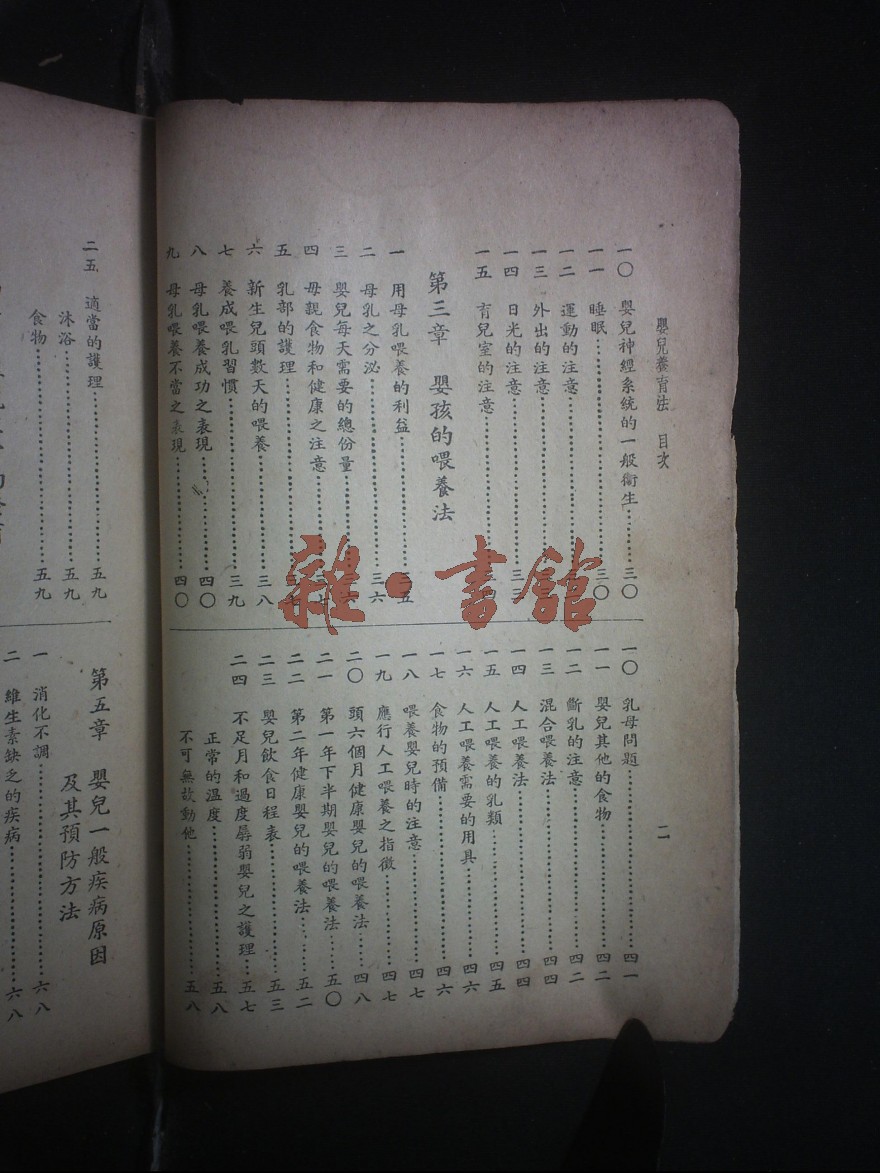 嬰兒養育法　目次
二
一〇　嬰兒神經系統的一般衛生………三〇
一一　睡眠………三〇
一二　運動的注意………
一三　外出的注意………
一四　日光的注意………三三
一五　育兒室的注意………
第三章　嬰孩的喂養法
一　用母乳喂養的利益………五
二　母乳之分泌………三六
三　嬰兒每天需要的總份量………
四　母親食物和健康之注意………
五　乳部的護理………七
六　新生兒頭數天的喂養………三八
七　養成喂乳習慣………三九
八　母乳喂養成功之表現………四〇
九　母乳喂養不當之表現………四〇
一〇　乳母問題………四一
一一　嬰兒其他的食物………四二
一二　斷乳的注意………四二
一三　混合喂養法………四四
一四　人工喂養法………四四
一五　人工喂養的乳類………四五
一六　人工喂養需要的用具………四六
一七　食物的預備………四六
一八　喂養嬰兒時的注意………四七
一九　應行人工喂養之指徵………四七
二〇　頭六個月健康嬰兒的喂養法………四八
二一　第一年下半期嬰兒的喂養法………五〇
二二　第二年健康嬰兒的喂養法………五二
二三　嬰兒飲食日程表………五三
二四　不足月和過度孱弱嬰兒之護理………五七
正常的溫度………五八
不可無故動他………五八
雜·書館
二五　適當的護理………五九
沐浴………五九
食物………五九
第五章　嬰兒一般疾病原因
及其預防方法
一　消化不調………六八
二　維生素缺乏的疾病………六八